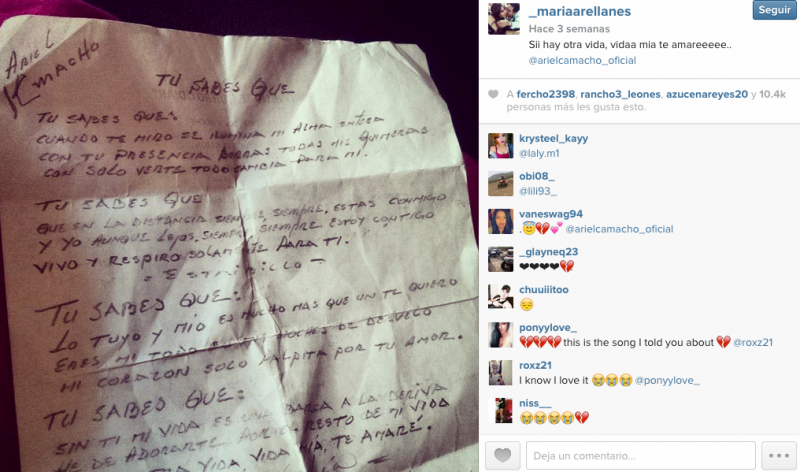 ARIEL
CAMACHO
TU SABES QUE
TU SABES QUE:
CUANDO TE MIRO SE ILUMINA MI ALMA ENTERA
CON TU PRESENCIA BORRAS TODAS MIS QUIMERAS
CON SOLO VERTE TODO CAMBIA PARA MI.
TU SABES QUE
QUE EN LA DISTANCIA SIEMPRE, SIEMPRE, ESTAS CONMIGO
Y YO AUNQUE LEJOS, SIEMPRE, SIEMPRE ESTOY CONTIGO
VIVO Y RESPIRO SOLAMENTE PARA TI.
- ESTRIBILLO -
TU SABES QUE:
LO TUYO Y MIO ES MUCHO MAS QUE UN TE QUIERO
ERES MI TODO NOCHES DE DESVELO
MI CORAZON SOLO PALPITA POR TU AMOR.
TU SABES QUE:
SIN TI MI VIDA ES UNA BARCA A LA DERIVA
HE DE ADORARTE RESTO DE MI VIDA
VIDA, VIDA MIA, TE AMARÉ.
_mariaarellanes
Seguir
Hace 3 semanas
Sii hay otra vida, vidaa mia te amareeeee..
@arielcamacho_oficial
A fercho2398, rancho3_leones, azucenareyes20 y 10.4k
personas más les gusta esto.
krysteel_kayy
@laly.m1
obi08_
@lili93_
vaneswag94
.😇💔💕 @arielcamacho_oficial
_glayneq23
❤❤❤❤💔
chuuiiitoo
😔
ponyylove_
💔💔💔💔 this is the song I told you about 💔 @roxz21
roxz21
I know I love it 😭😭😭 @ponyylove_
niss__
😭😭😭😭💔
Deja un comentario...